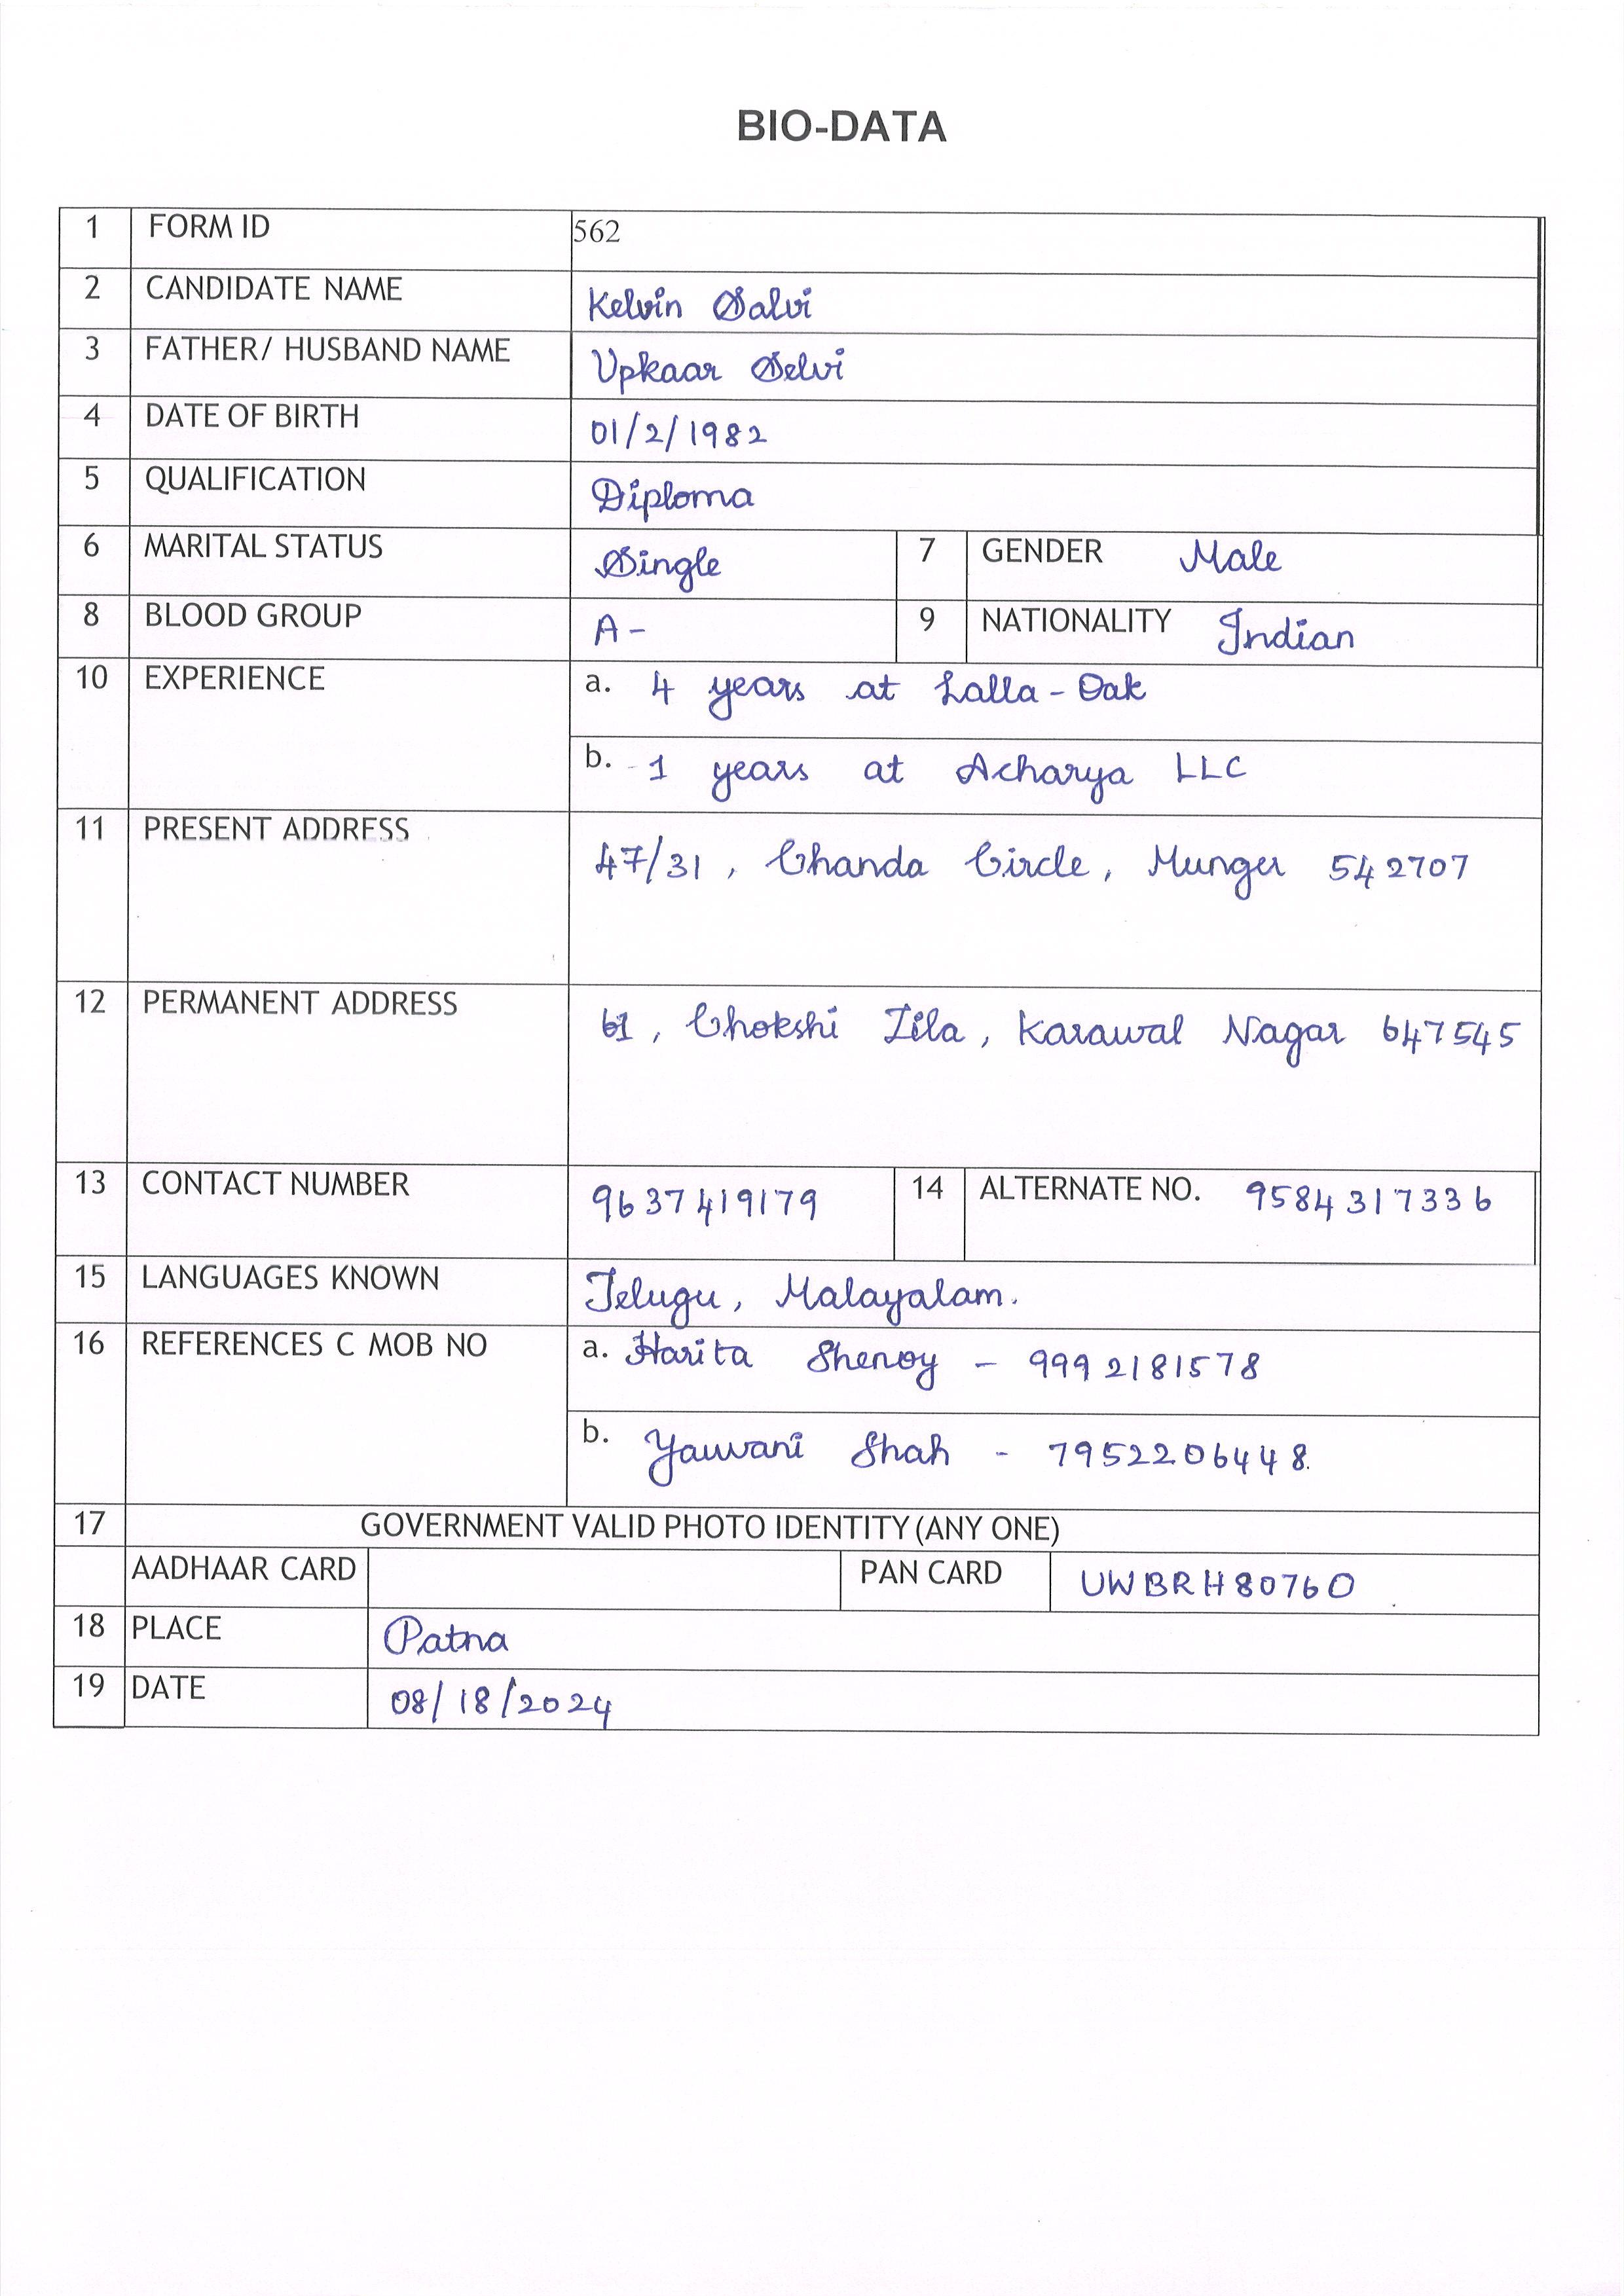 BIO-DATA
1 FORM ID 562
2 CANDIDATE NAME Kelvin Salvi
3 FATHER/ HUSBAND NAME Upkaar Selvi
4 DATE OF BIRTH 01/2/1982
5 QUALIFICATION Diploma
6 MARITAL STATUS Single 7 GENDER Male
8 BLOOD GROUP A- 9 NATIONALITY Indian
10 EXPERIENCE a. 4 years at Lalla-Oak
b. 1 years at Acharya LLC
11 PRESENT ADDRESS 47/31, Chanda Circle, Munger 542707
12 PERMANENT ADDRESS 61, Chokshi Zila, Karawal Nagar 647545
13 CONTACT NUMBER 9637419179 14 ALTERNATE NO. 9584317336
15 LANGUAGES KNOWN Telugu, Malayalam.
16 REFERENCES C MOB NO a. Harita Shenoy - 9992181578
b. Yauvani Shah - 7952206448.
17 GOVERNMENT VALID PHOTO IDENTITY (ANY ONE)
AADHAAR CARD PAN CARD UWBRH8076O
18 PLACE Patna
19 DATE 08/18/2024